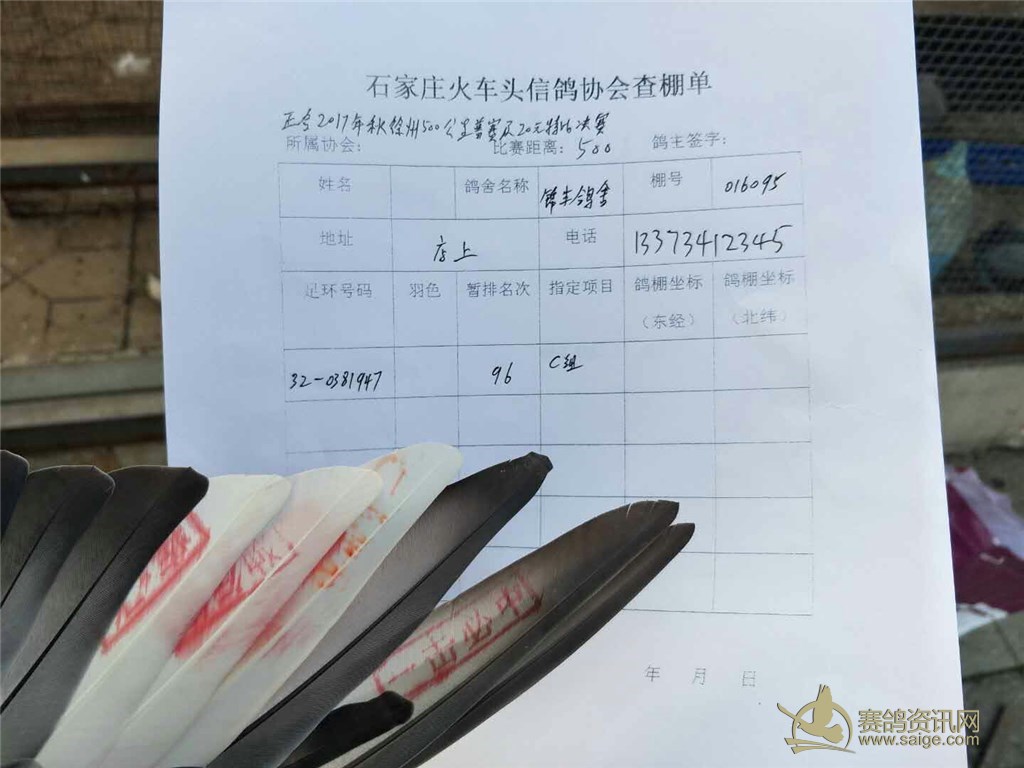 石家庄火车头信鸽协会查棚单
2017年秋徐州500公里普赛及20元特比决赛
所属协会: 比赛距离: 500 鸽主签字:
姓名 鸽舍名称 鸽舍 棚号 016095
地址 店上 电话 13373412345
足环号码 羽色 暂排名次 指定项目 鸽棚坐标（东经） 鸽棚坐标（北纬）
32-0381947 96 C组
一击必中
年 月 日
赛鸽资讯网
www.saige.com